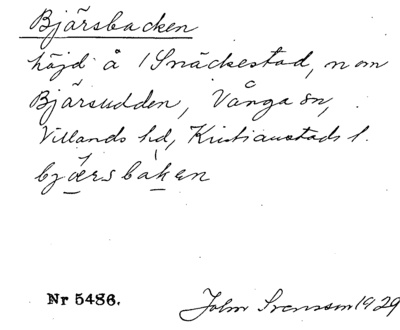 Bjärsbacken
höjd å 1 Snäckestad, n om
Bjärsudden, Vånga sn,
Villands hd, Kristianstads l.
bjærsbakən
Nr 5486.
John Svensson 1929